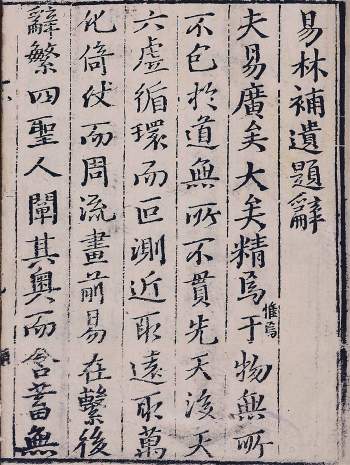 易林補遺題辭
夫易廣矣大矣精焉惟焉于物無所
不包於道無所不貫先天後天
六虛循環而叵測近取遠取萬
化倚伏而周流畫前易在繫後
辭繁四聖人闡其奧而含蓄無